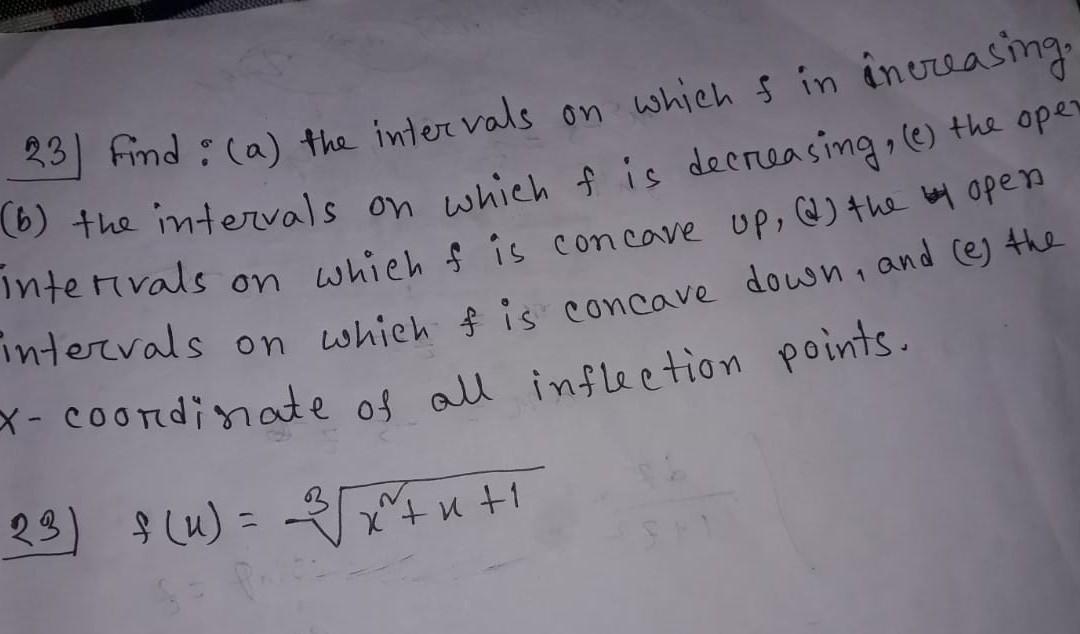 23) Find : (a) the intervals on which f in increasing,
(b) the intervals on which f is decreasing, (c) the open
intervals on which f is concave up, (d) the open
intervals on which f is concave down, and (e) the
x-coordinate of all inflection points.
23) f(x) = ∛(x²+x+1)